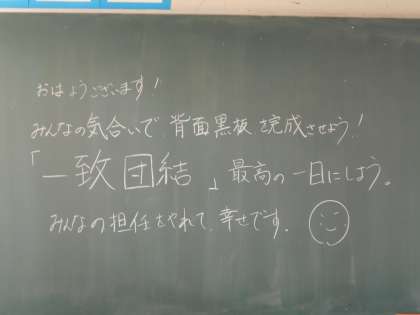 おはようございます!
みんなの気合いで、背面黒板を完成させよう!
「一致団結」最高の一日にしよう。
みんなの担任をやれて、幸せです。